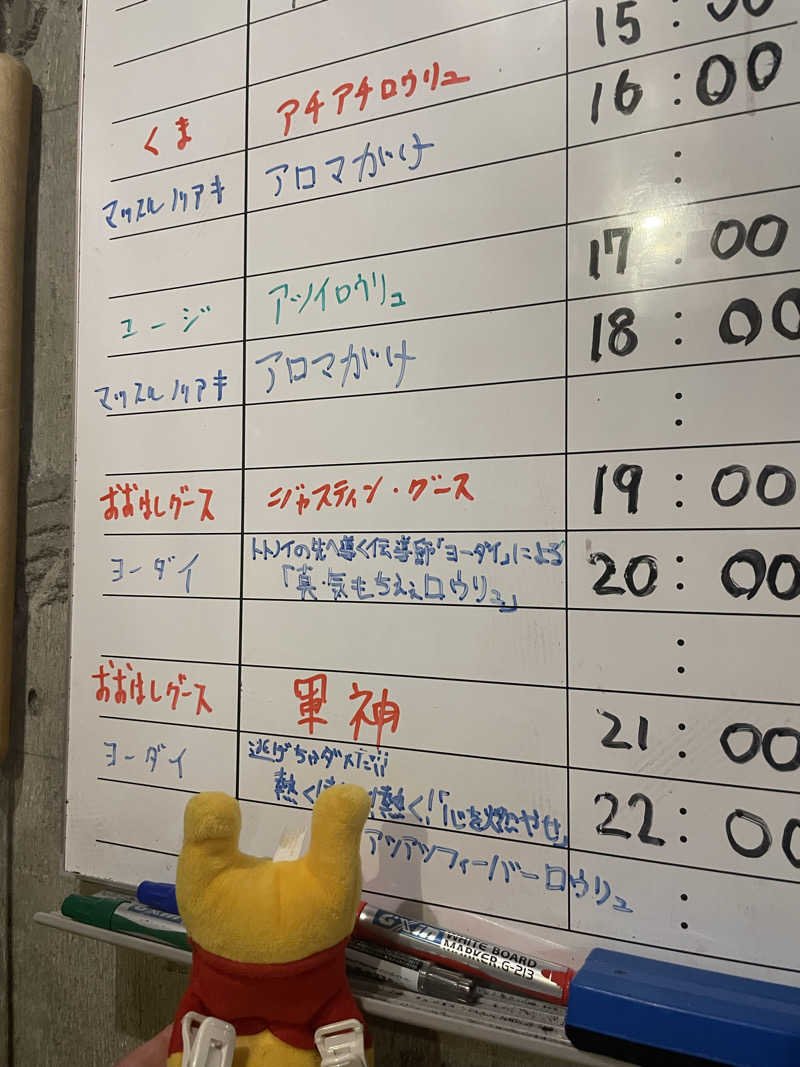 15:00
くま アチアチロウリュ 16:00
マッスルノリアキ アロマがけ :
17:00
ユージ アツイロウリュ 18:00
マッスルノリアキ アロマがけ :
おおはしグース ジャスティン・グース 19:00
ヨーダイ トトノイの先へ導く伝導師「ヨーダイ」による 20:00
「真・気もちぇぇロウリュ」
:
おおはしグース 軍神 21:00
ヨーダイ 逃げちゃダメだ!! 22:00
熱く 熱く!「心を燃やせ」
アツアツフィーバーロウリュ :
WHITE BOARD
MARKER.G-213